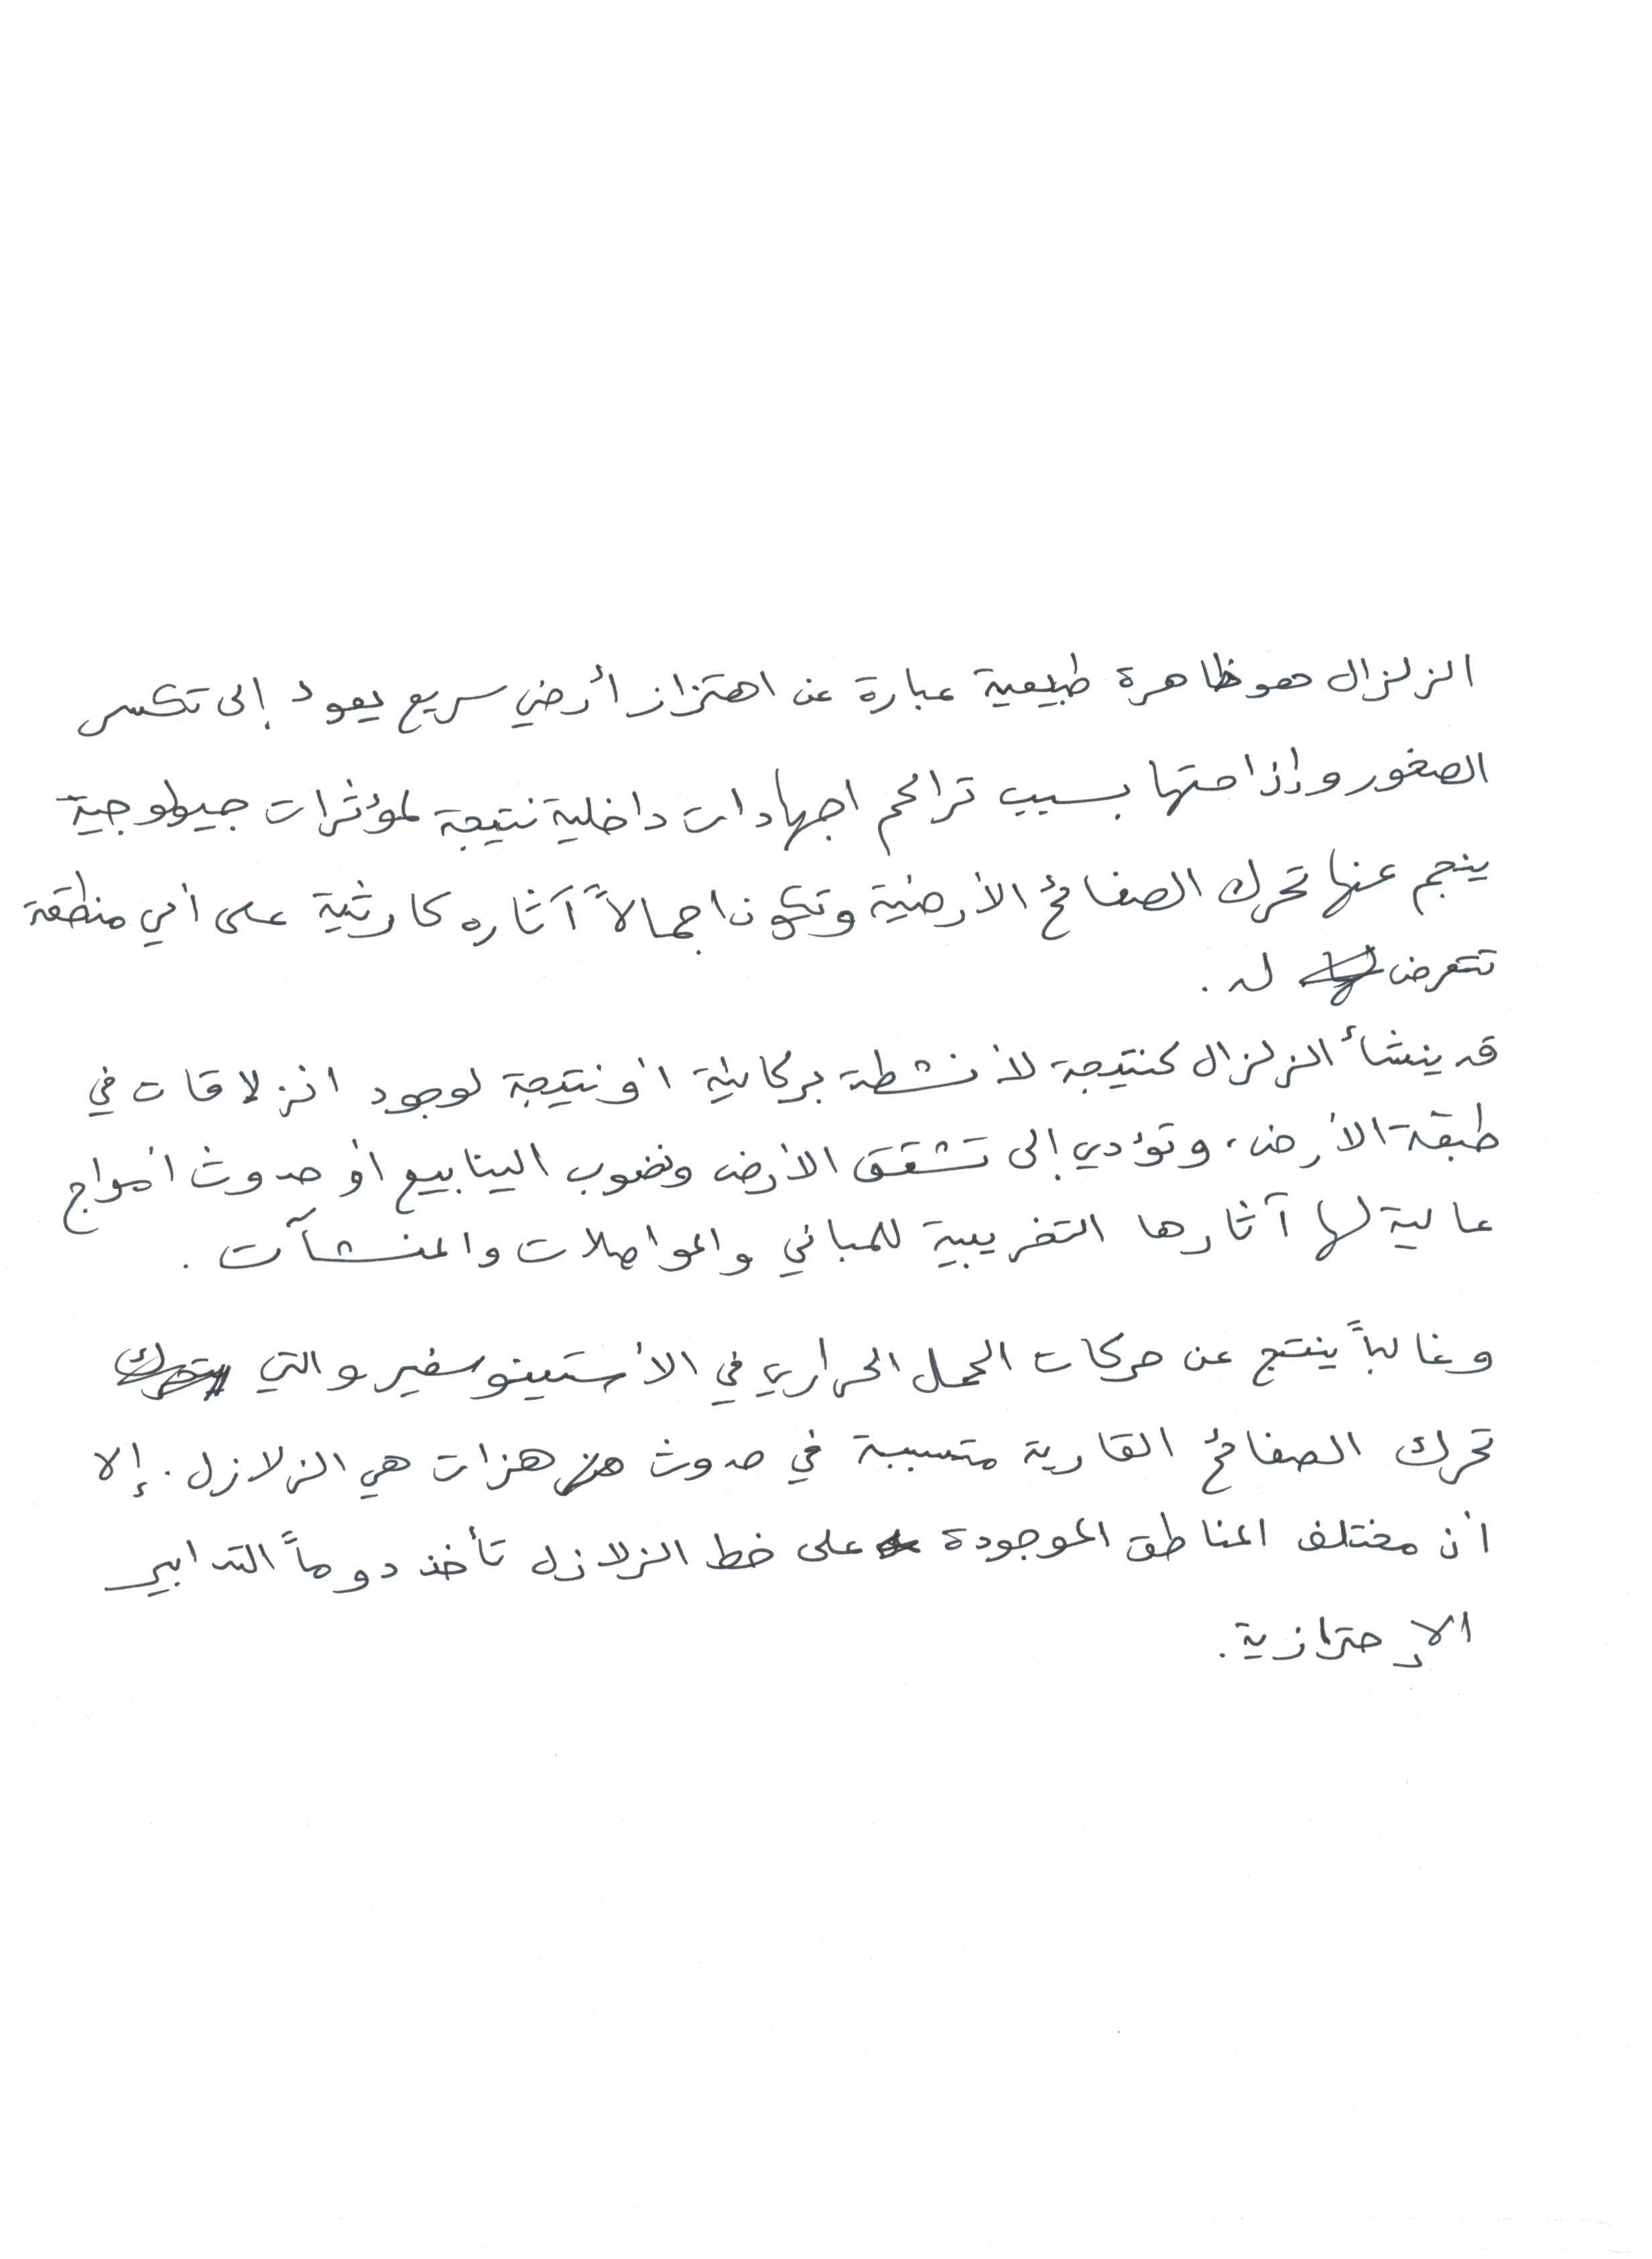 الزلزال هو ظاهرة طبيعية عبارة عن اهتزاز أرضي سريع يعود إلى تكسر
الصخور وإزاحتها بسبب تراكم اجهادات داخلية نتيجة لمؤثرات جيولوجية
ينجم عنها تحرك الصفائح الأرضية وتكون اجمالاً آثاره كارثية على أي منطقة
تتعرض له .
قد ينشأ الزلزال كنتيجة لأنشطة بركانية أو نتيجة لوجود انزلاقات في
طبقة الأرض، وتؤدي إلى تشقق الأرض ونضوب الينابيع أو حدوث أمواج
عالية لها آثارها التخريبية للمباني والمواصلات والمنشآت .
وغالباً ينتج عن حركات الحمل الحراري في الأستينوسفير والتي
تحرك الصفائح القارية متسببة في حدوث هزات هي الزلازل. إلا
أن مختلف المناطق الموجودة على خط الزلازل تأخذ دوماً التدابير
الإحترازية.